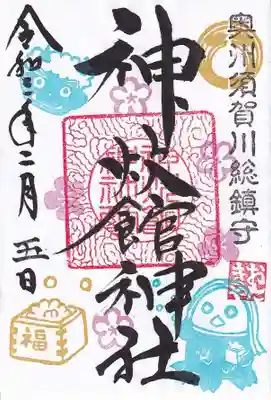 奥州須賀川総鎮守
神炊館神社
令和三年二月五日
福